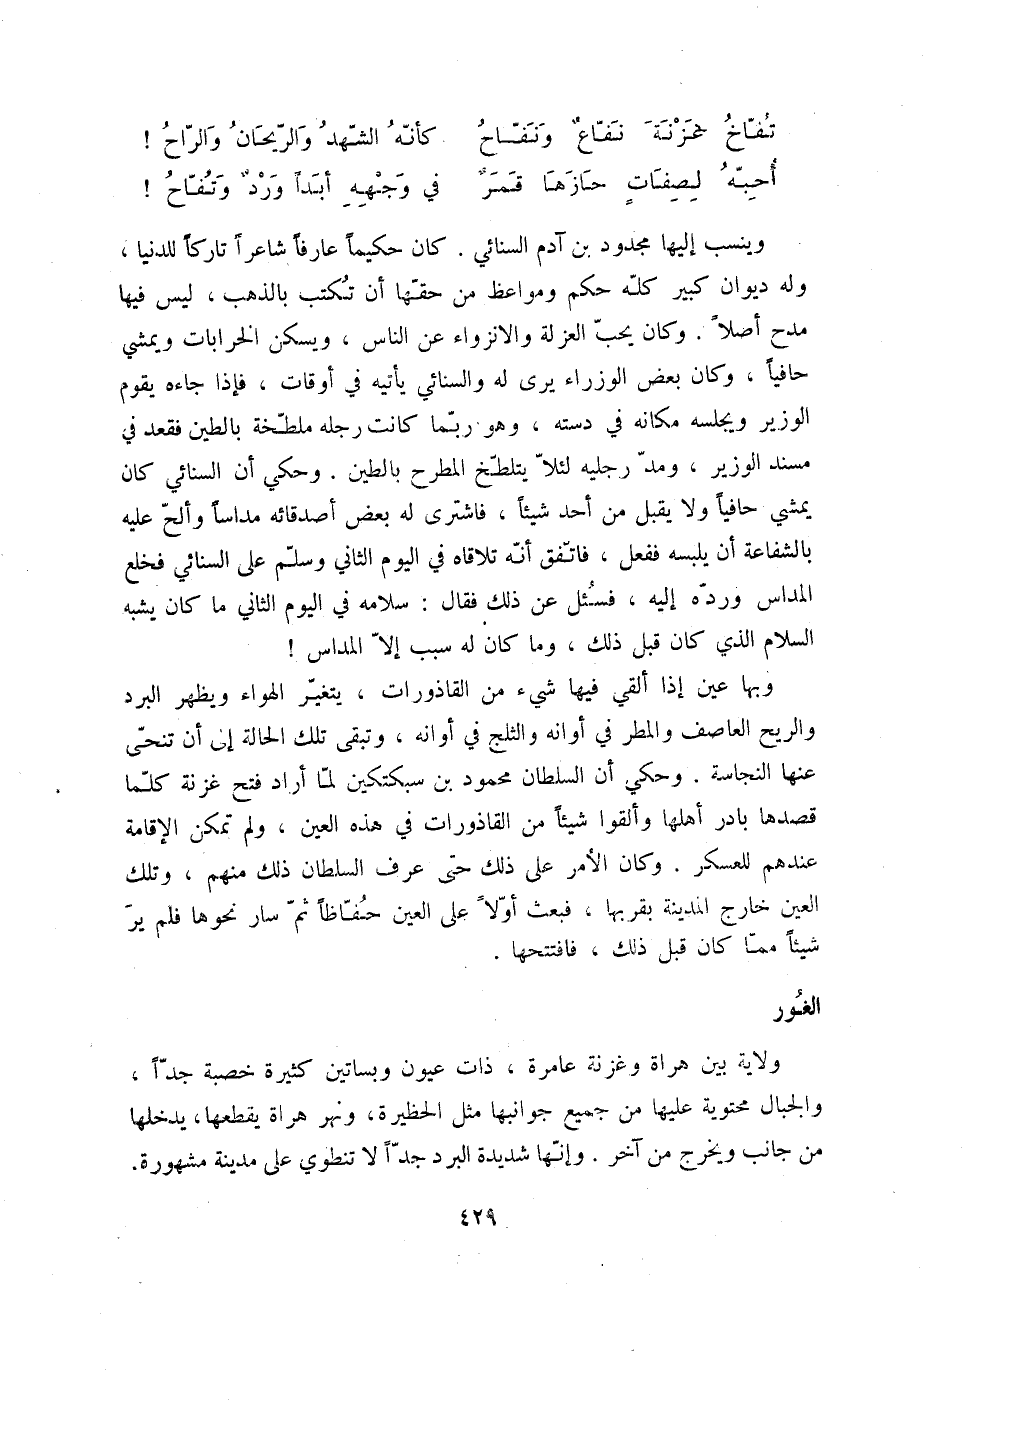 تُفّاحُ غَزْنَةَ نَفّاعٌ وَنَفّاحُ كأنّهُ الشّهدُ وَالرّيحَانُ وَالرّاحُ !
أُحِبّهُ لِصِفَاتٍ حَازَهَا قَمَرٌ في وَجْهِهِ أبَداً وَرْدٌ وَتُفّاحُ !
وينسب إليها مجدود بن آدم السنائي . كان حكيماً عارفاً شاعراً تاركاً للدنيا ،
وله ديوان كبير كلّه حكم ومواعظ من حقّها أن تُكتب بالذهب ، ليس فيها
مدح أصلاً . وكان يحبّ العزلة والانزواء عن الناس ، ويسكن الخرابات ويمشي
حافياً ، وكان بعض الوزراء يرى له والسنائي يأتيه في أوقات ، فإذا جاءه يقوم
الوزير ويجلسه مكانه في دسته ، وهو ربّما كانت رجله ملطّخة بالطين فقعد في
مسند الوزير ، ومدّ رجليه لئلاّ يتلطّخ المطرح بالطين . وحكي أن السنائي كان
يمشي حافياً ولا يقبل من أحد شيئاً ، فاشترى له بعض أصدقائه مداساً وألحّ عليه
بالشفاعة أن يلبسه ففعل ، فاتّفق أنّه تلاقاه في اليوم الثاني وسلّم على السنائي فخلع
المداس وردّه إليه ، فسُئل عن ذلك فقال : سلامه في اليوم الثاني ما كان يشبه
السلام الذي كان قبل ذلك ، وما كان له سبب إلاّ المداس !
وبها عين إذا ألقي فيها شيء من القاذورات ، يتغيّر الهواء ويظهر البرد
والريح العاصف والمطر في أوانه والثلج في أوانه ، وتبقى تلك الحالة إلى أن تنحّى
عنها النجاسة . وحكي أن السلطان محمود بن سبكتكين لمّا أراد فتح غزنة كلّما
قصدها بادر أهلها وألقوا شيئاً من القاذورات في هذه العين ، ولم تمكن الإقامة
عندهم للعسكر . وكان الأمر على ذلك حتّى عرف السلطان ذلك منهم ، وتلك
العين خارج المدينة بقربها ، فبعث أوّلاً على العين حُفّاظاً ثمّ سار نحوها فلم يرَ
شيئاً ممّا كان قبل ذلك ، فافتتحها .
الغُور
ولاية بين هراة وغزنة عامرة ، ذات عيون وبساتين كثيرة خصبة جدّاً ،
والجبال محتوية عليها من جميع جوانبها مثل الحظيرة، ونهر هراة يقطعها، يدخلها
من جانب ويخرج من آخر . وإنّها شديدة البرد جدّاً لا تنطوي على مدينة مشهورة.
٤٢٩